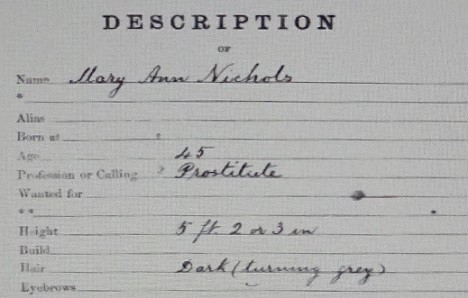 DESCRIPTION
OF
Name Mary Ann Nichols
*
Alias
Born at
Age 45
Profession or Calling Prostitute
Wanted for
**
Height 5 ft. 2 or 3 in
Build
Hair Dark (turning grey)
Eyebrows